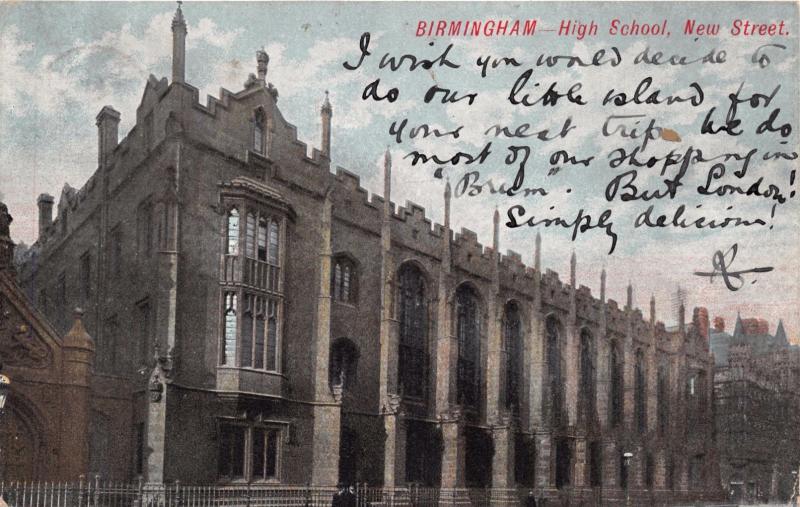 BIRMINGHAM—High School, New Street.
I wish you would decide to
do our little island for
your next trip. We do
most of our shopping in
"Brum". But London!
Simply delicious!